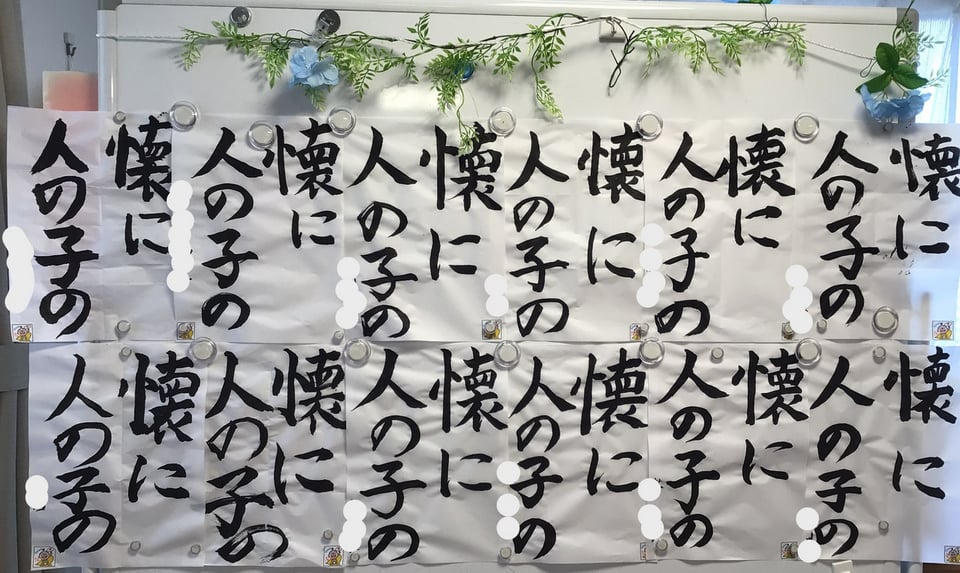 懐に
人の子の
懐に
人の子の
懐に
人の子の
懐に
人の子の
懐に
人の子の
懐に
人の子の
懐に
人の子の
懐に
人の子の
懐に
人の子の
懐に
人の子の
懐に
人の子の
懐に
人の子の